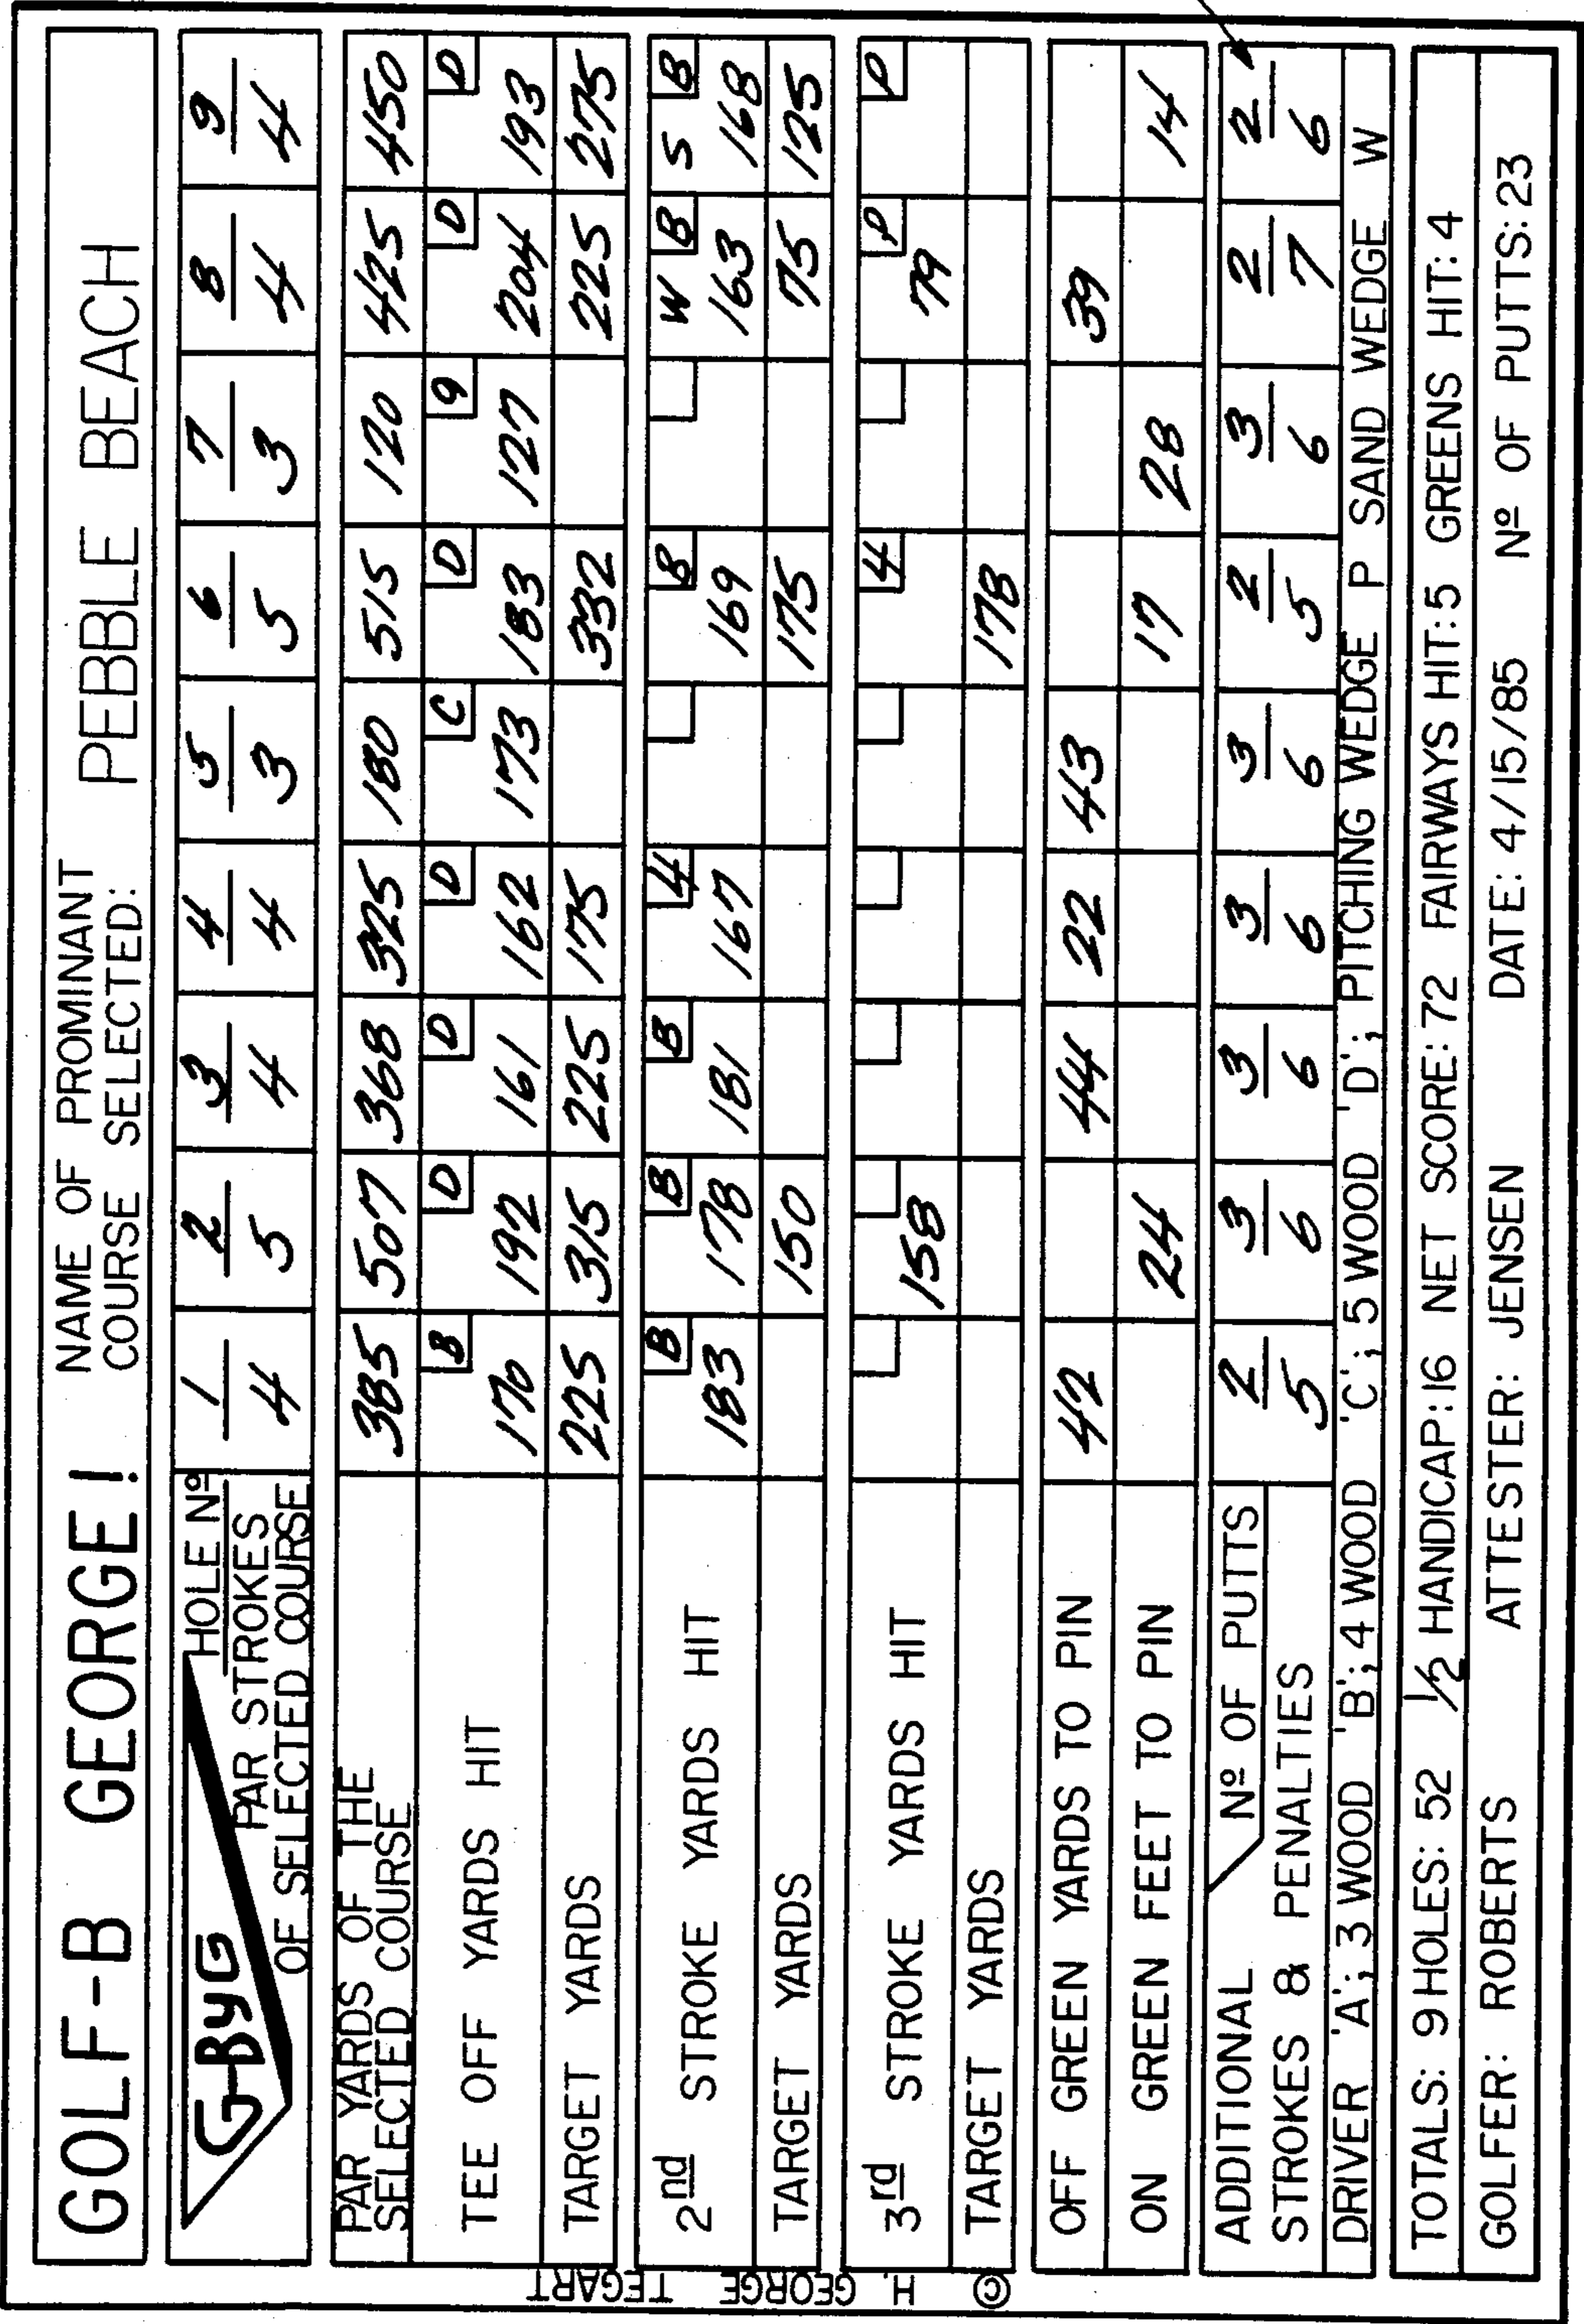 GOLF-B GEORGE! NAME OF PROMINANT COURSE SELECTED: PEBBLE BEACH
G-ByG HOLE Nº 1 2 3 4 5 6 7 8 9
PAR STROKES OF SELECTED COURSE 4 5 4 4 3 5 3 4 4
PAR YARDS OF THE SELECTED COURSE 385 507 368 325 180 515 120 425 450
B D D D C D 9 D D
TEE OFF YARDS HIT 170 192 161 162 173 183 127 204 193
TARGET YARDS 225 315 225 175 332 225 275
B B B 4 B W B S B
2nd STROKE YARDS HIT 183 178 181 167 169 163 168
TARGET YARDS 150 175 75 125
4 P P
3rd STROKE YARDS HIT 158 79
TARGET YARDS 178
OFF GREEN YARDS TO PIN 42 44 22 43 39
ON GREEN FEET TO PIN 24 17 28 14
ADDITIONAL Nº OF PUTTS 2 3 3 3 3 2 3 2 2
STROKES & PENALTIES 5 6 6 6 6 5 6 7 6
DRIVER 'A'; 3 WOOD 'B'; 4 WOOD 'C'; 5 WOOD 'D'; PITCHING WEDGE P SAND WEDGE W
TOTALS: 9 HOLES: 52 1/2 HANDICAP: 16 NET SCORE: 72 FAIRWAYS HIT: 5 GREENS HIT: 4
GOLFER: ROBERTS ATTESTER: JENSEN DATE: 4/15/85 Nº OF PUTTS: 23
© H. GEORGE TEGART